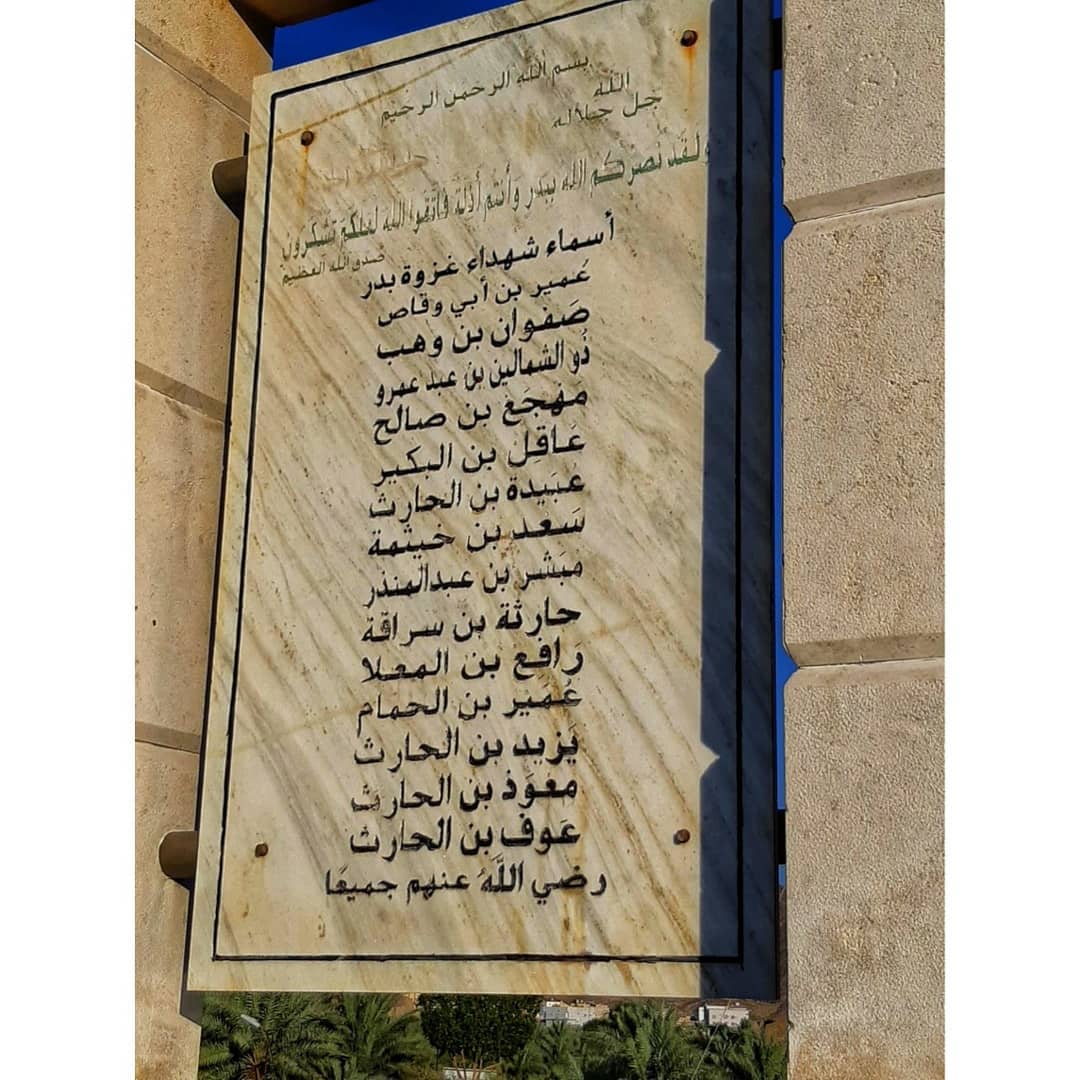 بسم الله الرحمن الرحيم
الله
جل جلاله
ولقد نصركم الله ببدر وأنتم أذلة فاتقوا الله لعلكم تشكرون
صدق الله العظيم
أسماء شهداء غزوة بدر
عُمير بن أبي وقاص
صَفوان بن وهب
ذُو الشمالين بن عبد عمرو
مَهجَع بن صالح
عَاقِل بن البكير
عبَيدة بن الحارث
سَعد بن خيثمة
مبَشر بن عبدالمنذر
حارثة بن سراقة
رَافِع بن المعلا
عُمَير بن الحمام
يَزيد بن الحارث
معوَذ بن الحارث
عَوف بن الحارث
رضي اللَّهَ عنهم جميعًا